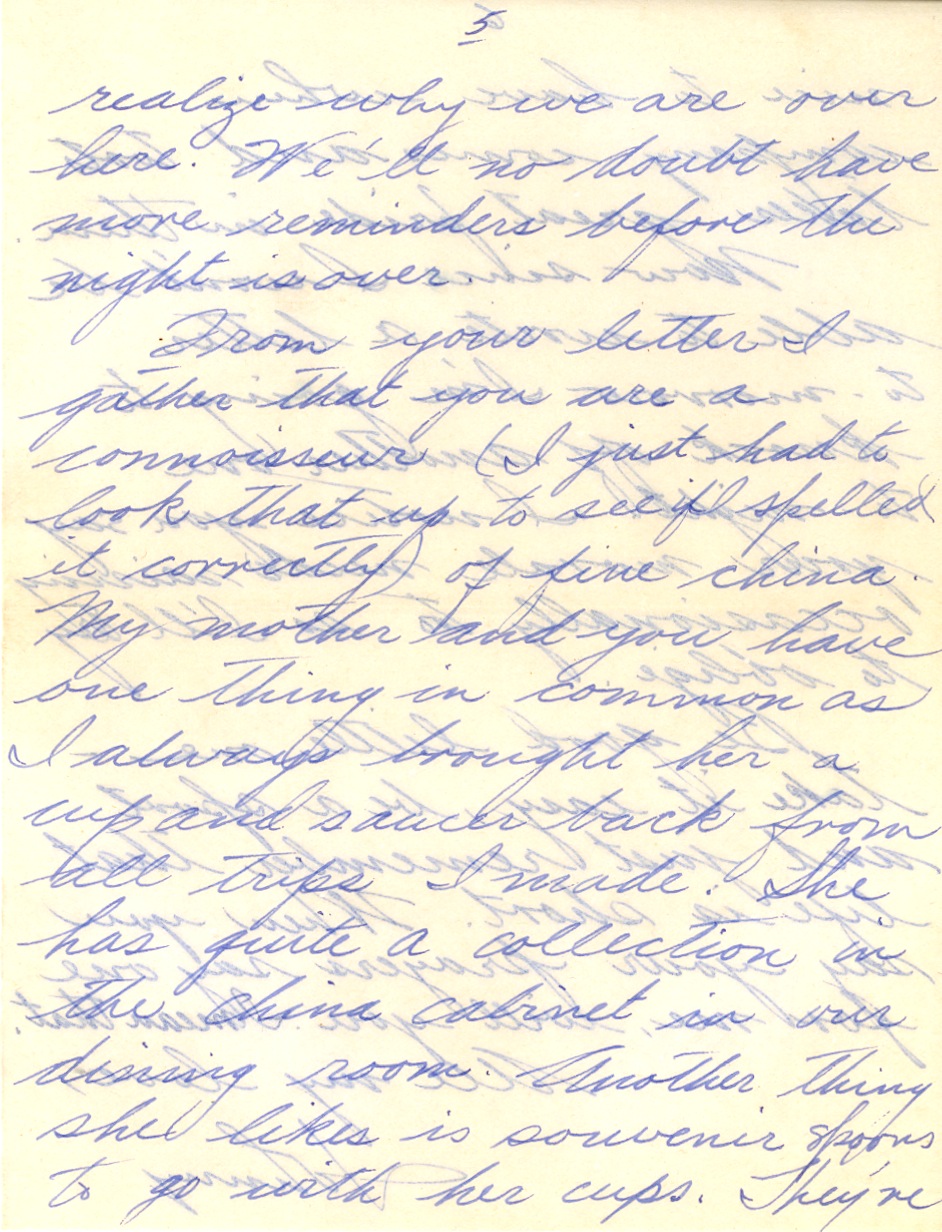 5
realize why we are over
here. We'll no doubt have
more reminders before the
night is over.
From your letter I
gather that you are a
connoisseur (I just had to
look that up to see if I spelled
it correctly) of fine china.
My mother and you have
one thing in common as
I always brought her a
cup and saucer back from
all trips I made. She
has quite a collection in
the china cabinet in our
dining room. Another thing
she likes is souvenir spoons
to go with her cups. They're